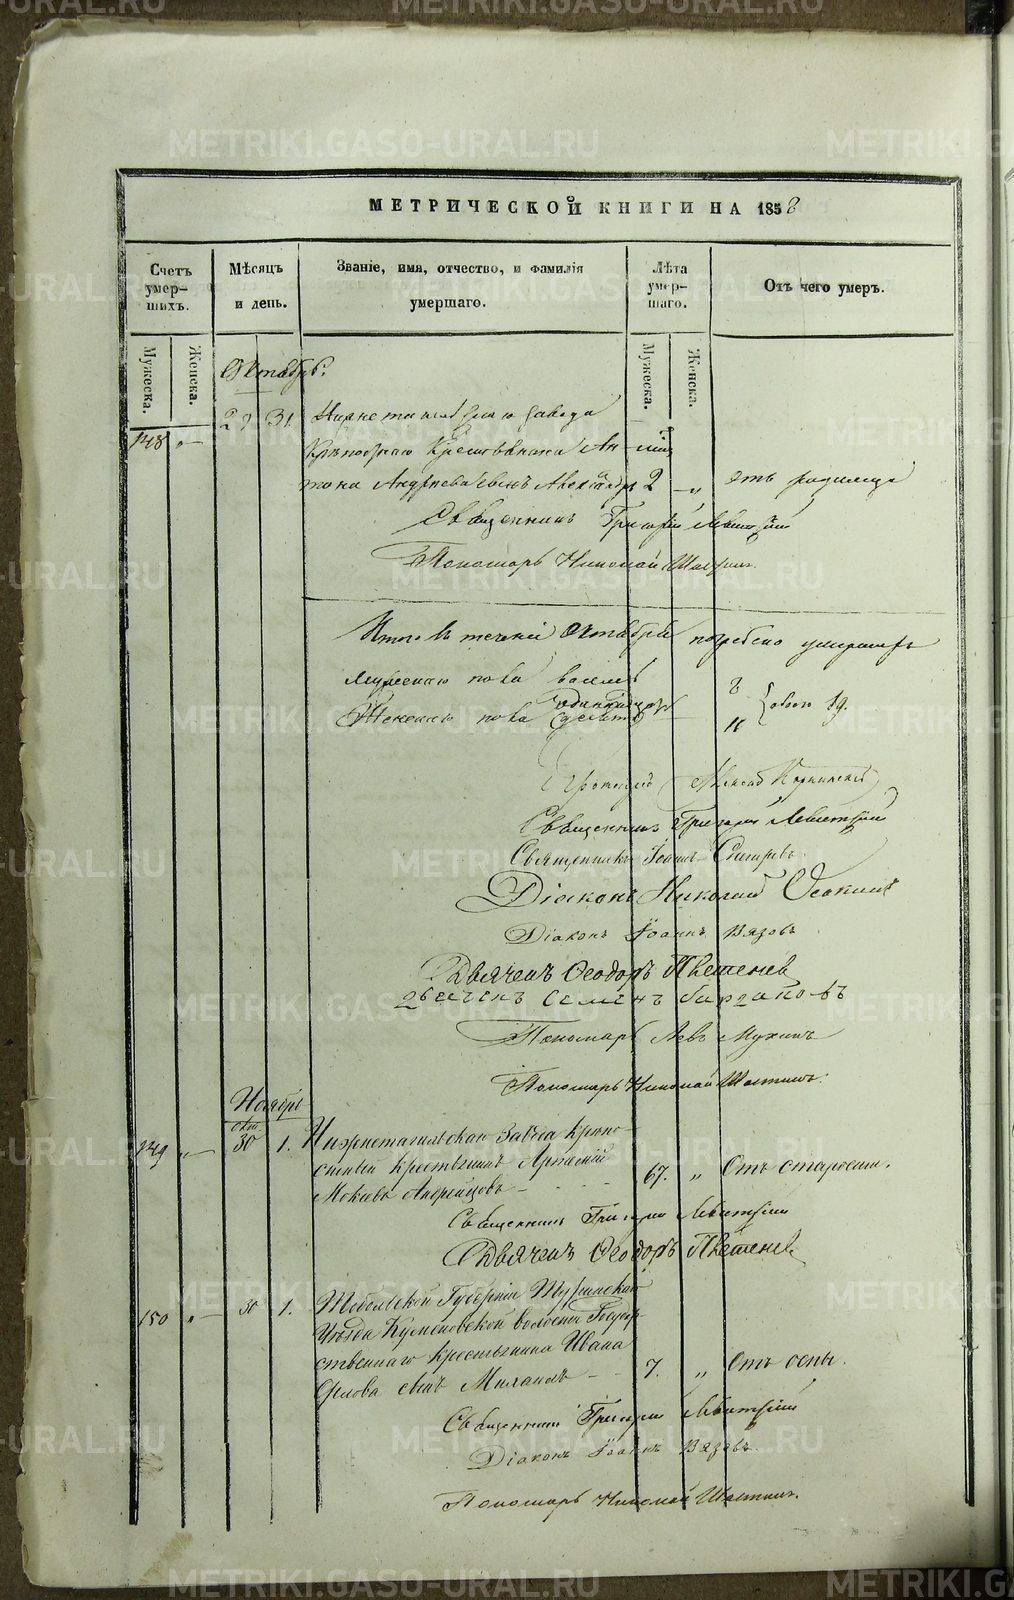 МЕТРИЧЕСКОЙ КНИГИ НА 1858
Счетъ умер-шихъ.
Мѣсяцъ и день.
Званіе, имя, отчество, и фамилія умершаго.
Лѣта умер-шаго.
Отъ чего умеръ.
Мужеска.
Женска.
Мужеска.
Женска.
Октябрь.
148 " 29 31 Нижнетагильскаго завода
Крѣпостнаго Крестьянина Ан-
тона Андреева сынъ Александръ 2 " отъ родимца
Священникъ Григорій Левитскій
Пономарь Николай
Итого въ теченіи Октября погребено умершихъ
Мужескаго пола восемь 8
Женскаго пола одиннадцать 11 обоего 19.
Протоіерей
Священникъ Григорій Левитскій
Священникъ Іоаннъ
Діаконъ Николай Осокинъ
Діаконъ Іоаннъ Вязовъ
Дьячекъ Ѳеодоръ
Дьячекъ Семенъ
Пономарь Левъ Мухинъ
Пономарь Николай
Ноябрь
окт.
149 " 30 1. Нижнетагильскаго Завода крѣпо-
стный крестьянинъ
Мокіевъ 67. " Отъ старости.
Священникъ Григорій Левитскій
Дьячекъ Ѳеодоръ
150 " 30 1. Тобольской Губерніи Туринскаго
Уѣзда Куменовской волости Государ-
ственнаго крестьянина Ивана
Орлова сынъ Михаилъ 7. " Отъ оспы.
Священникъ Григорій Левитскій
Діаконъ Іоаннъ Вязовъ
Пономарь Николай
METRIKI.GASO-URAL.RU